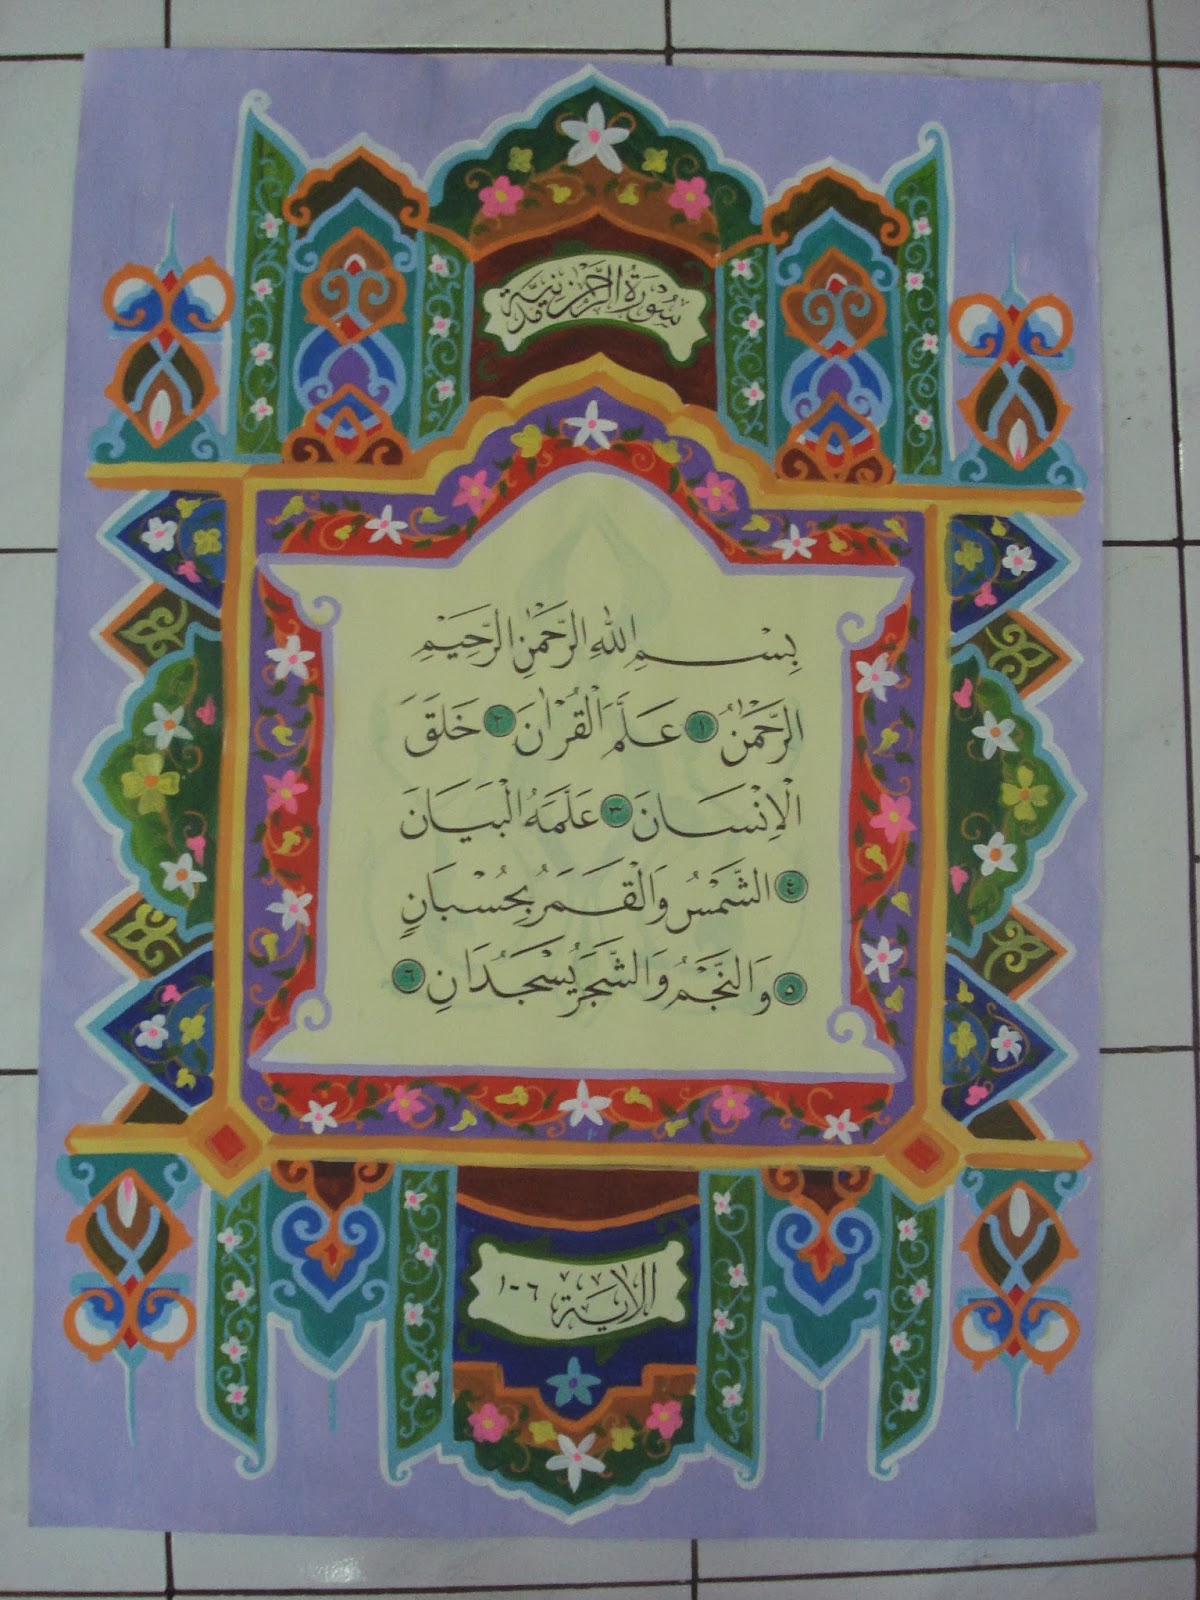 سُوْرَةُ الرَّحْمٰنِ مَدَنِيَّة
بِسْمِ اللهِ الرَّحْمٰنِ الرَّحِيْمِ
الرَّحْمٰنُ ١ عَلَّمَ الْقُرْاٰنَ ٢ خَلَقَ
الْاِنْسَانَ ٣ عَلَّمَهُ الْبَيَانَ
٤ الشَّمْسُ وَالْقَمَرُ بِحُسْبَانٍ
٥ وَالنَّجْمُ وَالشَّجَرُ يَسْجُدَانِ ٦
الاية ٦-١